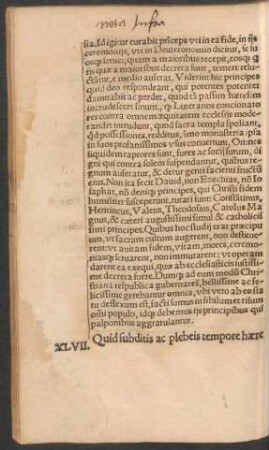 nota Infra
sia. Id igitur curabit princeps vti in ea fide, in ijs
ceremonijs, vti in Deuteronomio dicitur, se suosq;
seruet, quam a maioribus recepit, eosq; q
a maioribus decreta sunt, temere reluctãtur,
e medio auferat. Viderint hic principes
quid deo respondeant, qui potentes potenter
damnabit ac perdet, quod tã passim hæresim
incrudescere sinunt, q Luteranos concionatores
contra omnem æquitatem ecclesiis moderandis
intrudunt, quod sacra templa spoliant,
qd possessiones, redditus, imo monasteria ipsa
in suos profanissimos vsus conuertunt. Omnes
liquidem raptores sunt, fures ac socij furum, digni
qui contra solem suspendantur, quibus regnum
auferatur, & detur genti facienti fructũ
eius. Non ita fecit Dauid, non Ezechias, nõ Iosaphat,
nõ deniq; principes, qui Christi fidem
humiliter susceperunt, tutati sunt: Constantinus,
Henricus, Valens, Theodosius, Carolus Magnus,
& cæteri augustissimi simul & catholicissimi
principes. Quibus hoc studij erat præcipuum,
vt sacrum cultum augerent, non destituerent:
vt auitam fidem, vitam, mores, ceremoniasq;
seruarent, non immutarent: vt operam
darent ea exequi, quæ ab ecclesiasticis iustissime
decreta fuere. Dumq; ad eum modũ Christiana
respublica gubernaret, bellissime ac felicissime
gerebantur omnia, vbi vero ab eo statu
deflexum est, facti sumus in sibilum et risum
omni populo, idq; debemus ijs principibus qui
palponibus aggratulantur.
XLVII. Quid subditis ac plebeis tempore hære